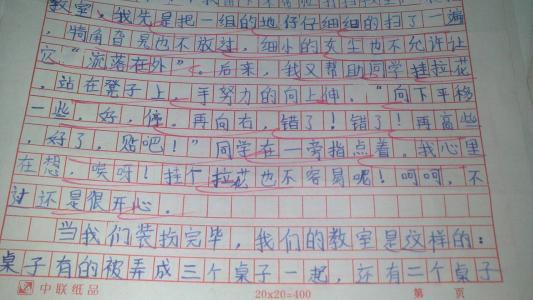 教室,我先是把一组的地仔仔细细的扫了一遍
,犄角旮旯也不放过,细小的灰尘也不允许让
它“流落在外”。后来,我又帮助同学挂拉花
,站在凳子上,手努力的向上伸,“向下平移
一些,好,停,再向右,错了!错了!再高些
,好了,贴吧!”同学在一旁指点着,我心里
在想,唉呀!挂个拉花也不容易呢!呵呵,不
过还是很开心。
当我们装扮完毕,我们的教室是这样的:
桌子有的被弄成三个桌子一起,还有二个桌子
中联纸品
20x20=400
第 页